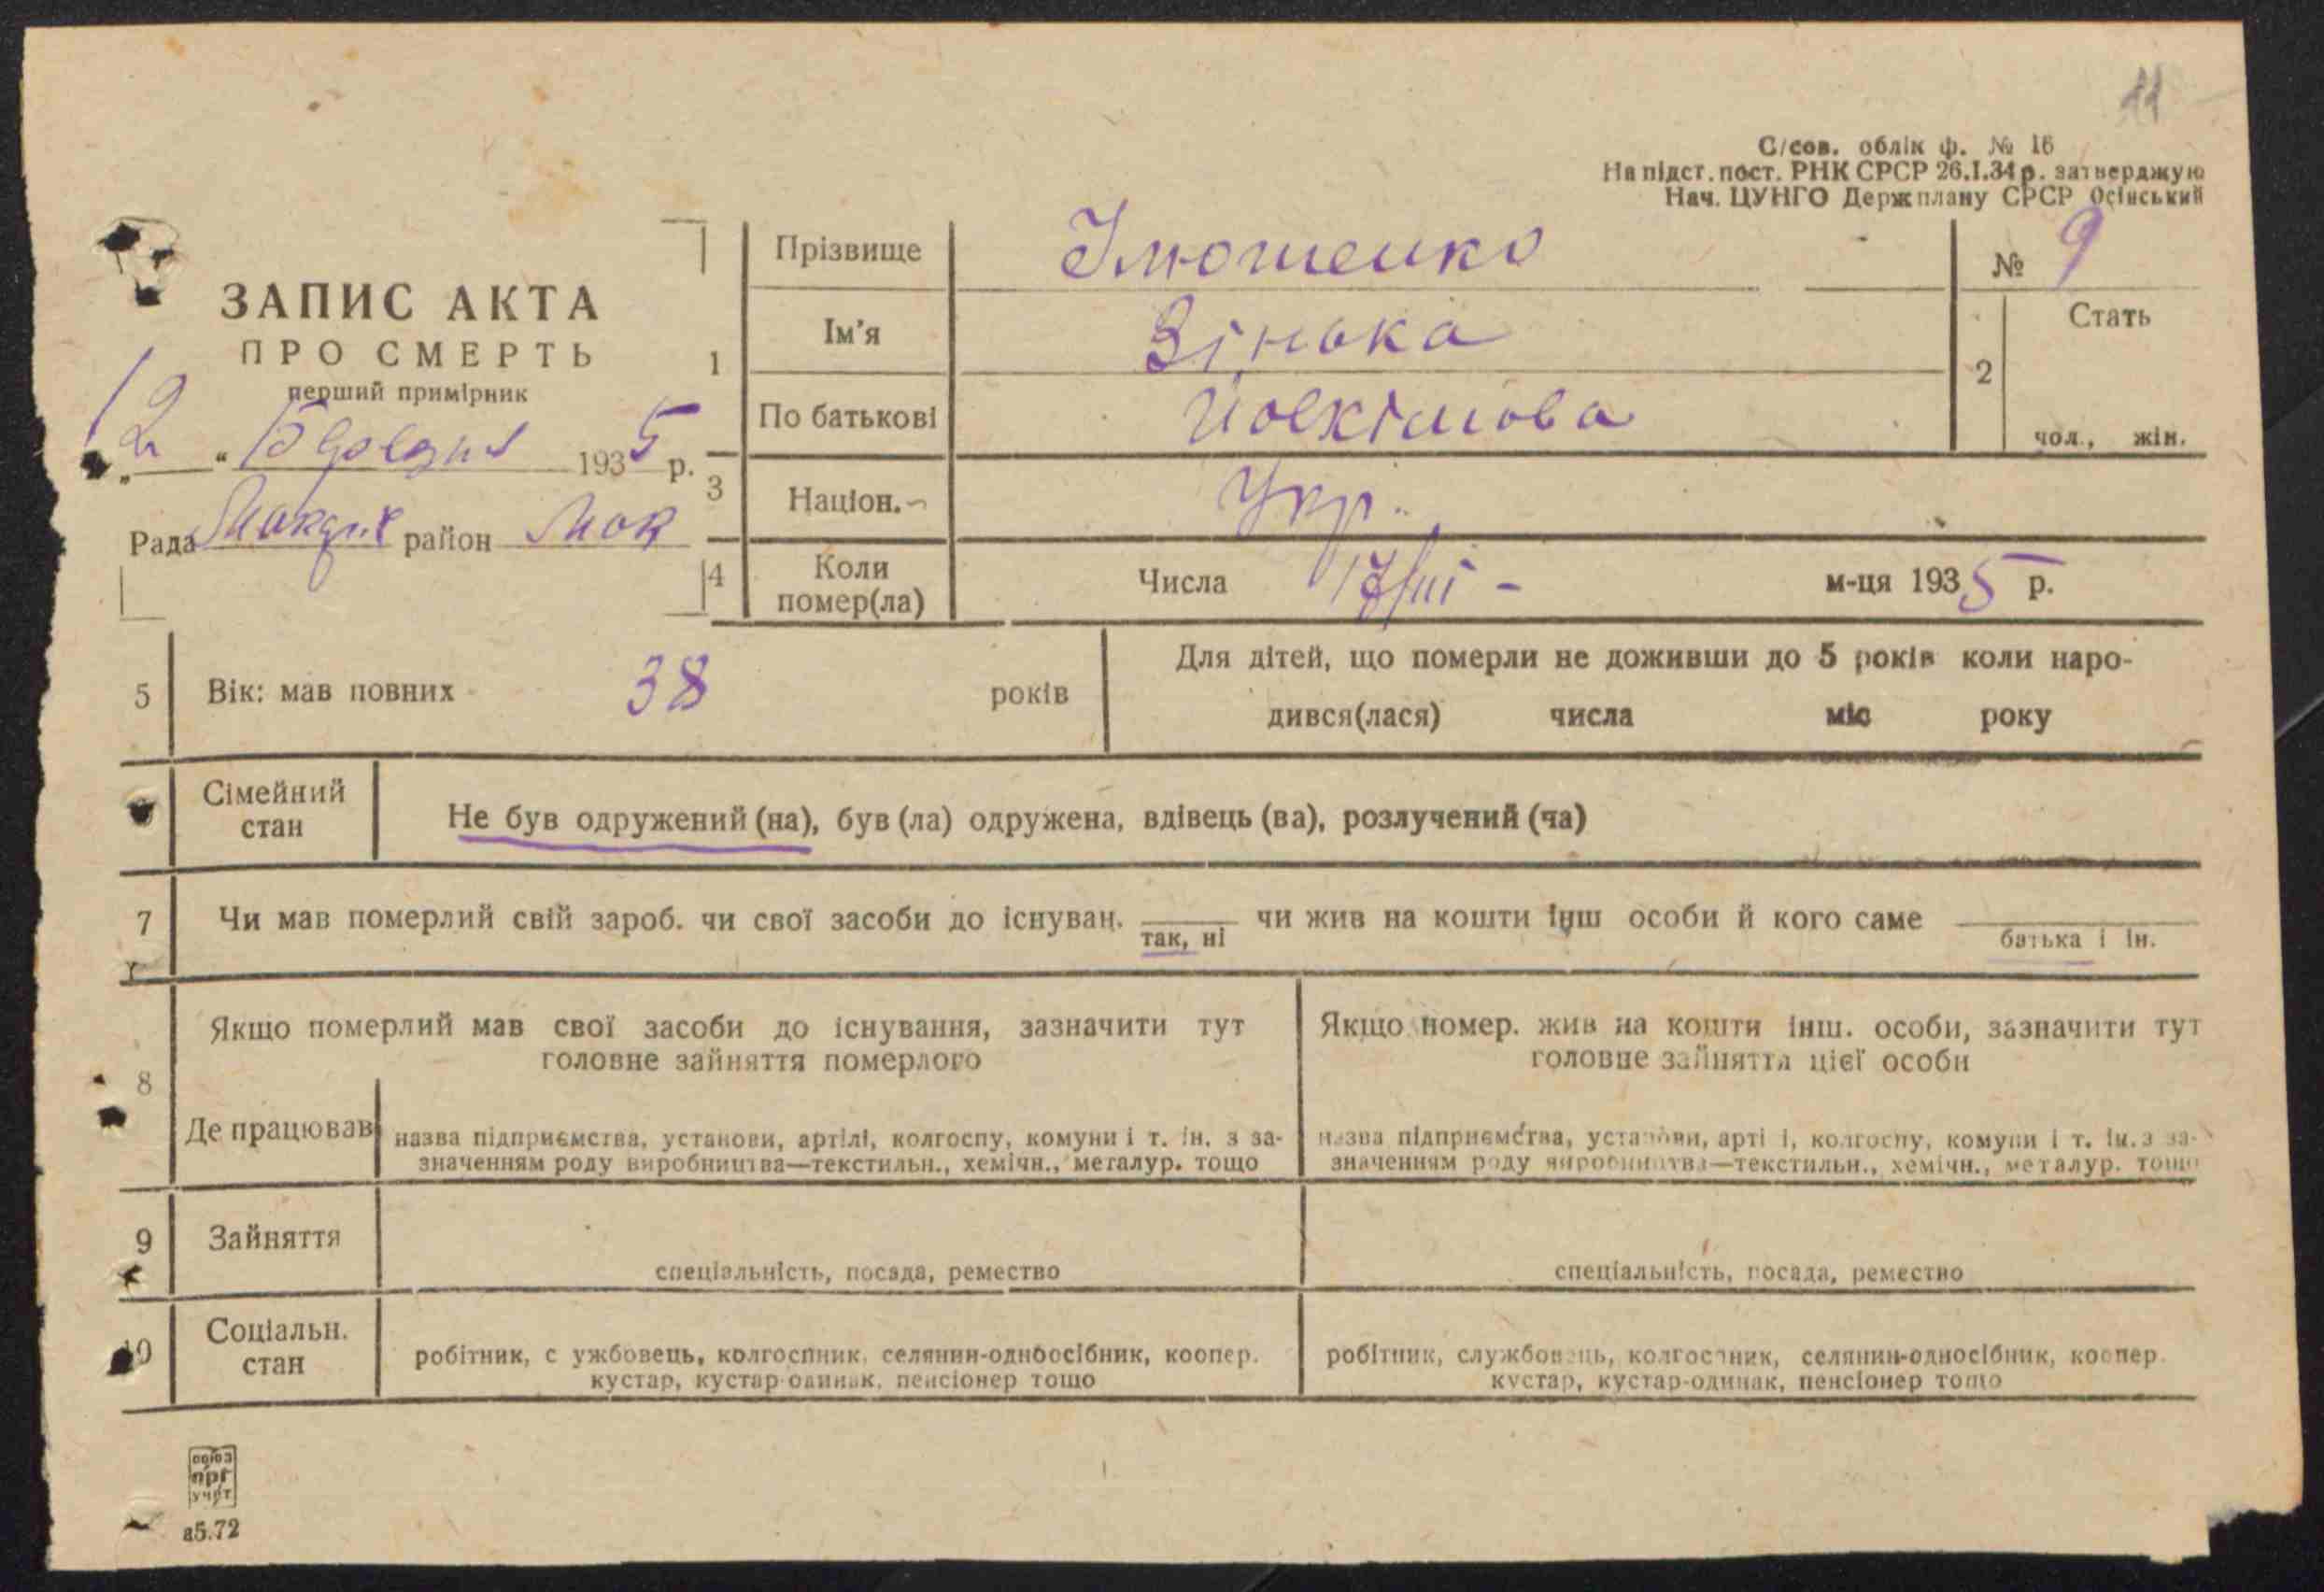 11
С/сов. облік ф. № 16
На підст. пост. РНК СРСР 26.I.34 р. затверджую
Нач. ЦУНГО Держплану СРСР Осінський
ЗАПИС АКТА
ПРО СМЕРТЬ
перший примірник
193 5 р.
Рада район Мок
1
Прізвище
Ім’я Зінька
По батькові
№ 9
2
Стать
чол., жін.
3
Націон. Укр.
4
Коли помер(ла)
Числа 17/III - м-ця 193 5 р.
5
Вік: мав повних 38 років
Для дітей, що померли не доживши до 5 років коли наро-
дився(лася) числа міс року
Сімейний
стан
Не був одружений (на), був (ла) одружена, вдівець (ва), розлучений (ча)
7
Чи мав померлий свій зароб. чи свої засоби до існуван. чи жив на кошти інш особи й кого саме
так, ні
батька і ін.
8
Якщо померлий мав свої засоби до існування, зазначити тут
головне зайняття померлого
Якщо помер. жив на кошти інш. особи, зазначити тут
головне зайняття цієї особи
Де працював
назва підприємства, установи, артілі, колгоспу, комуни і т. ін. з за-
значенням роду виробництва—текстильн., хемічн., металур. тощо
назва підприємства, установи, арті і, колгоспу, комуни і т. ін. з за-
значенням роду виробництва—текстильн., хемічн., металур. тощо
9
Зайняття
спеціальність, посада, ремество
спеціальність, посада, ремество
10
Соціальн.
стан
робітник, с ужбовець, колгоспник, селянин-одноосібник, коопер.
кустар, кустар-одинак, пенсіонер тощо
робітник, службовець, колгоспник, селянин-односібник, коопер.
кустар, кустар-одинак, пенсіонер тощо
союз
орг
учет
а5.72